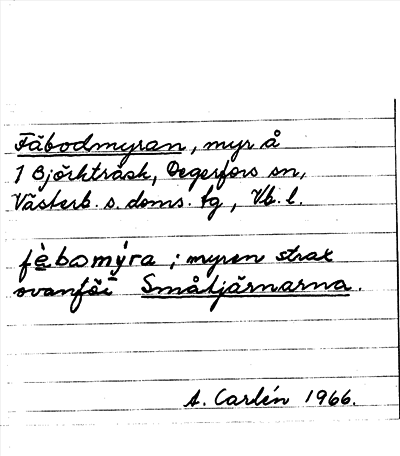 Fäbodmyran, myr å
1 Björkträsk, Degerfors sn,
Västerb. s. doms. tg, Vb. l.
fèbωmýra ; myren strax
ovanför Småtjärnarna.
A. Carlén 1966.